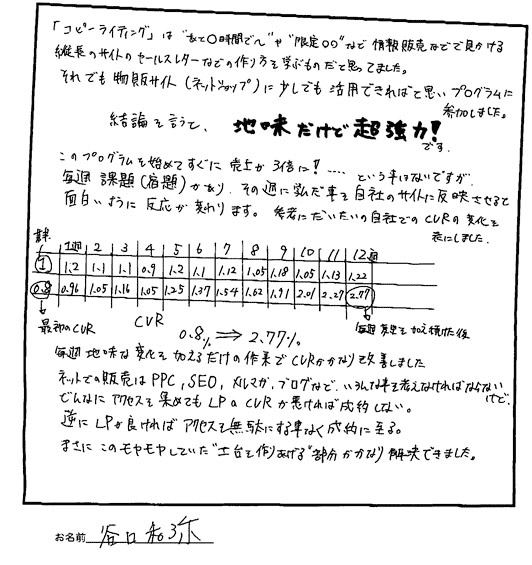 「コピーライティング」は"あと〇時間で〜"や"限定〇〇"など情報販売などで見かける
縦長のサイトのセールスレターなどの作り方を学ぶものだと思ってました。
それでも物販サイト(ネットショップ)に少しでも活用できればと思いプログラムに
参加しました。
結論を言うと、地味だけど超強力!です。
このプログラムを始めてすぐに売上が3倍に!・・・・という事はないですが
毎週課題(宿題)があり、その週に学んだ事を自社のサイトに反映させると
面白いように反応が変わります。参考にだいたいの自社でのCVRの変化を
表にしました。
1週 2 3 4 5 6 7 8 9 10 11 12週
1 1.2 1.1 1.1 0.9 1.2 1.1 1.12 1.05 1.18 1.05 1.13 1.22
0.8 0.96 1.05 1.16 1.05 1.25 1.37 1.54 1.62 1.91 2.01 2.27 2.77
最初のCVR
CVR
0.8% ⇒ 2.77%
毎週変更を加え続けた後
毎週地味な変化を加えるだけの作業でCVRがかなり改善しました
ネットでの販売はPPC,SEO,メルマガ,ブログなど、いろんな事を考えなければならない
けど、
どんなにアクセスを集めてもLPのCVRが悪ければ成約しない。
逆にLPが良ければアクセスを無駄にする事なく成約に至る。
まさにこのモヤモヤしていた"土台を作りあげる"部分がかなり解決できました。
お名前 谷口和弥